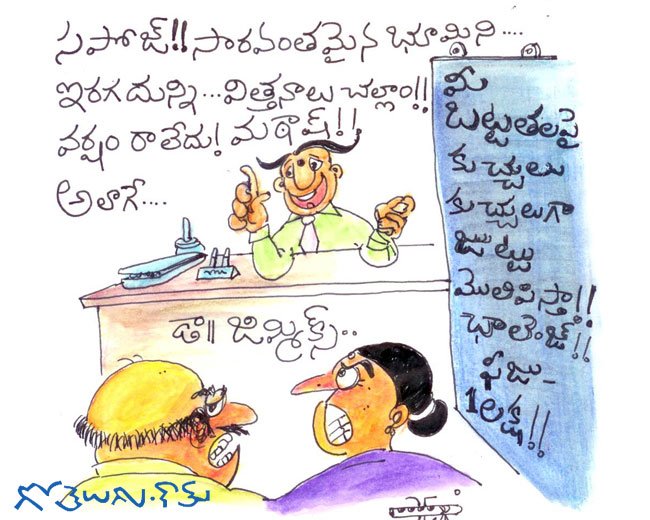 సపోజ్!! సారవంతమైన భూమిని....
ఇరగదున్ని...విత్తనాలు చల్లాం!!
వర్షం రాలేదు! మఠాష్!!
అలాగే....
మీ
బట్టతలపై
కుచ్చులు
కుచ్చులుగా
జుట్టు
మొలిపిస్తా!!
ఛాలెంజ్!!
ఫీజు-
1లక్ష!!
డా|| జిమ్మిక్స్..
గోతెలుగు.కామ్